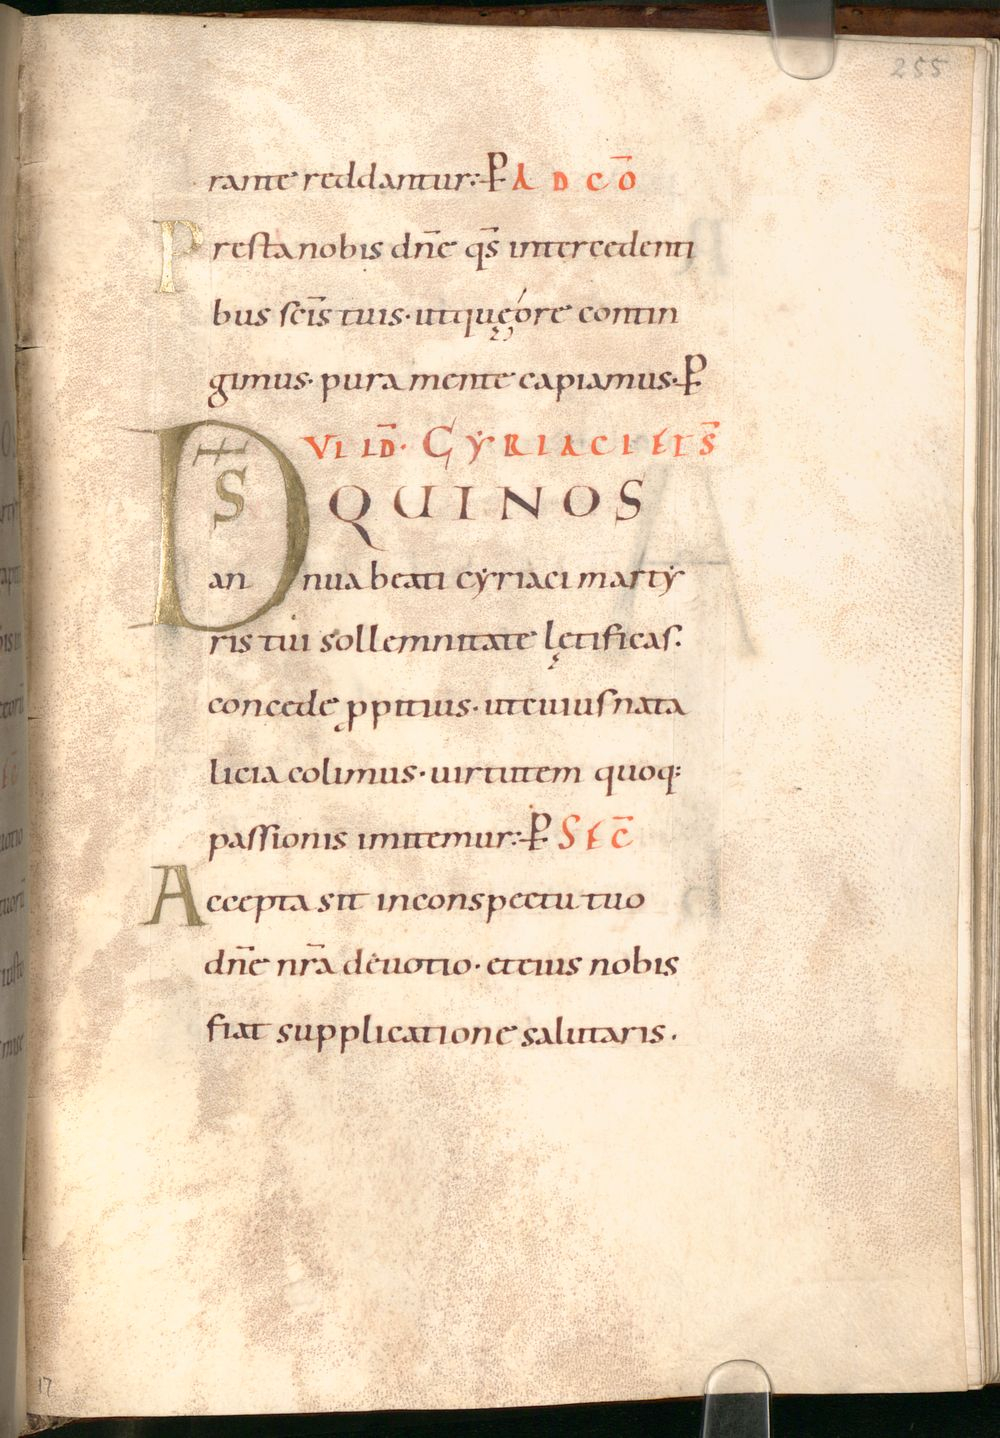 255
rante reddantur:· P AD CŌ
Presta nobis dn̄e qs̄ intercedenti
bus sc̄is tuis· ut quę óre contin
gimus· pura mente capiamus· P
VI ID̄· CYRIACI ET S̄
DS̄ QUI NOS
annua beati cyriaci marty
ris tui sollemnitate lętificas·
concede ppitius· ut cuius nata
licia colimus· uirtutem quoq:
passionis imitemur:· P SEC̄
Accepta sit in conspectu tuo
dn̄e nr̄a deuotio· et eius nobis
fiat supplicatione salutaris·
17